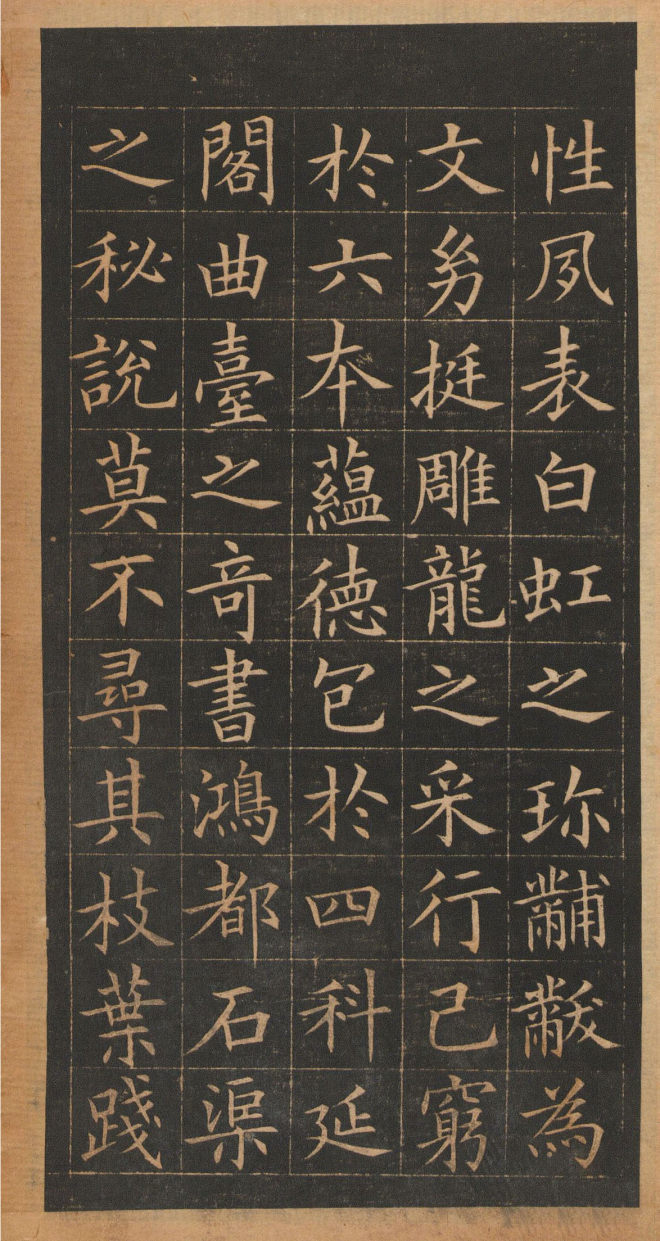 性夙表白虹之珎黼黻為
文㓜挺雕龍之采行己窮
於六本蘊德包於四科延
閣曲臺之竒書鴻都石渠
之秘説莫不尋其枝葉踐